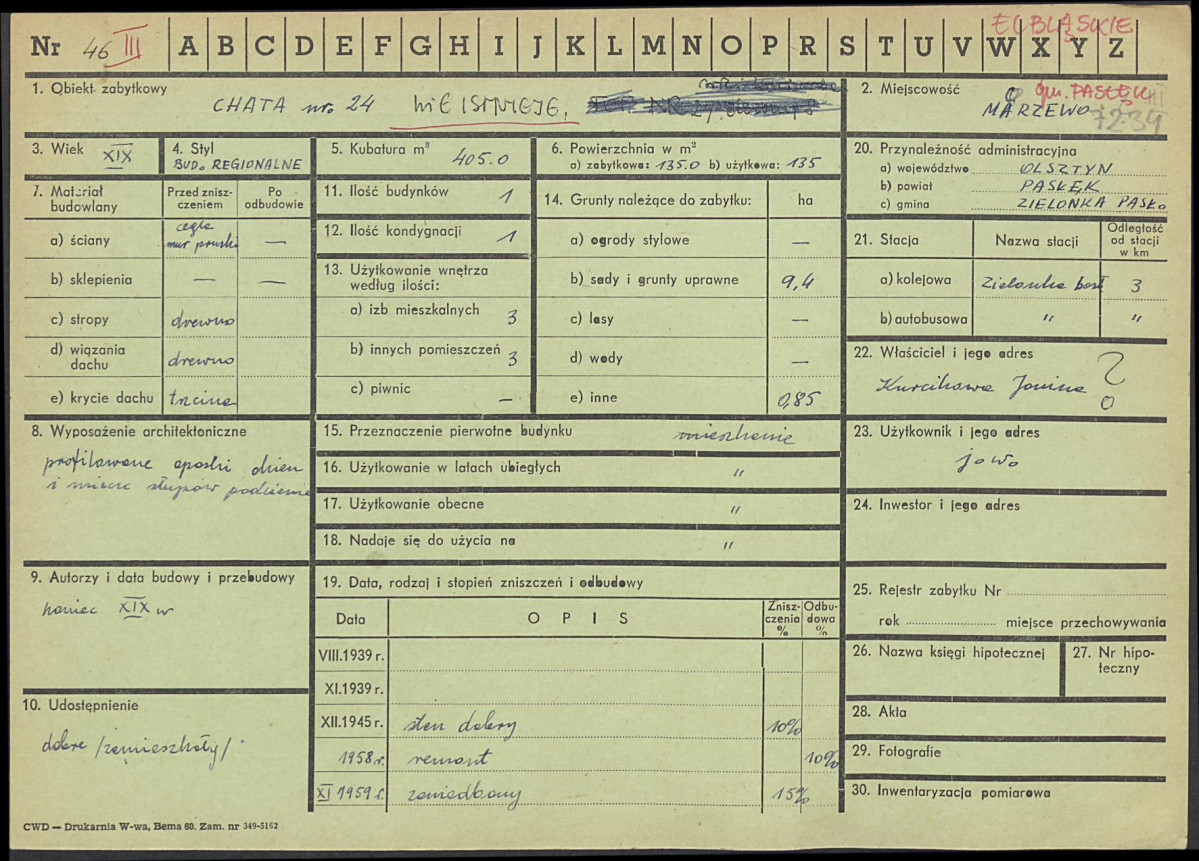 Nr 46 III A B C D E F G H I J K L M N O P R S T U V W X Y Z
ELBLĄSKIE
1. Obiekt zabytkowy
CHATA nr. 24 NIE ISTNIEJE.
2. Miejscowość
gm. PASŁĘK
MARZEWO
3. Wiek XIX
4. Styl
BUD. REGIONALNE
5. Kubatura m³ 405.0
6. Powierzchnia w m²
a) zabytkowa: 135.0 b) użytkowa: 135
20. Przynależność administracyjna
a) województwo OLSZTYN
b) powiat PASŁĘK
c) gmina ZIELONKA PASŁ.
7. Materiał budowlany
Przed zniszczeniem
Po odbudowie
a) ściany cegła mur pruski —
b) sklepienia — —
c) stropy drewno
d) wiązania dachu drewno
e) krycie dachu trzcina
11. Ilość budynków 1
12. Ilość kondygnacji 1
13. Użytkowanie wnętrza
według ilości:
a) izb mieszkalnych 3
b) innych pomieszczeń 3
c) piwnic —
14. Grunty należące do zabytku: ha
a) ogrody stylowe —
b) sady i grunty uprawne 9,4
c) lasy —
d) wody —
e) inne 0,85
21. Stacja Nazwa stacji
Odległość od stacji w km
a) kolejowa Zielonka 3
b) autobusowa " "
22. Właściciel i jego adres
Janina ?
8. Wyposażenie architektoniczne
profilowane opaski drzwi
i miecze słupów podcienia
15. Przeznaczenie pierwotne budynku mieszkanie
16. Użytkowanie w latach ubiegłych "
17. Użytkowanie obecne "
18. Nadaje się do użycia na "
23. Użytkownik i jego adres
j.w.
24. Inwestor i jego adres
9. Autorzy i data budowy i przebudowy
koniec XIX w
19. Data, rodzaj i stopień zniszczeń i odbudowy
Data O P I S Zniszczenia % Odbudowa %
VIII.1939 r.
XI.1939 r.
XII.1945 r. stan dobry 10%
1958 r. remont 10%
XI 1959 r. zaniedbany 15%
25. Rejestr zabytku Nr
rok miejsce przechowywania
26. Nazwa księgi hipotecznej
27. Nr hipoteczny
10. Udostępnienie
dobre /zamieszkały/
28. Akta
29. Fotografie
30. Inwentaryzacja pomiarowa
CWD — Drukarnia W-wa, Bema 60. Zam. nr 349-5162